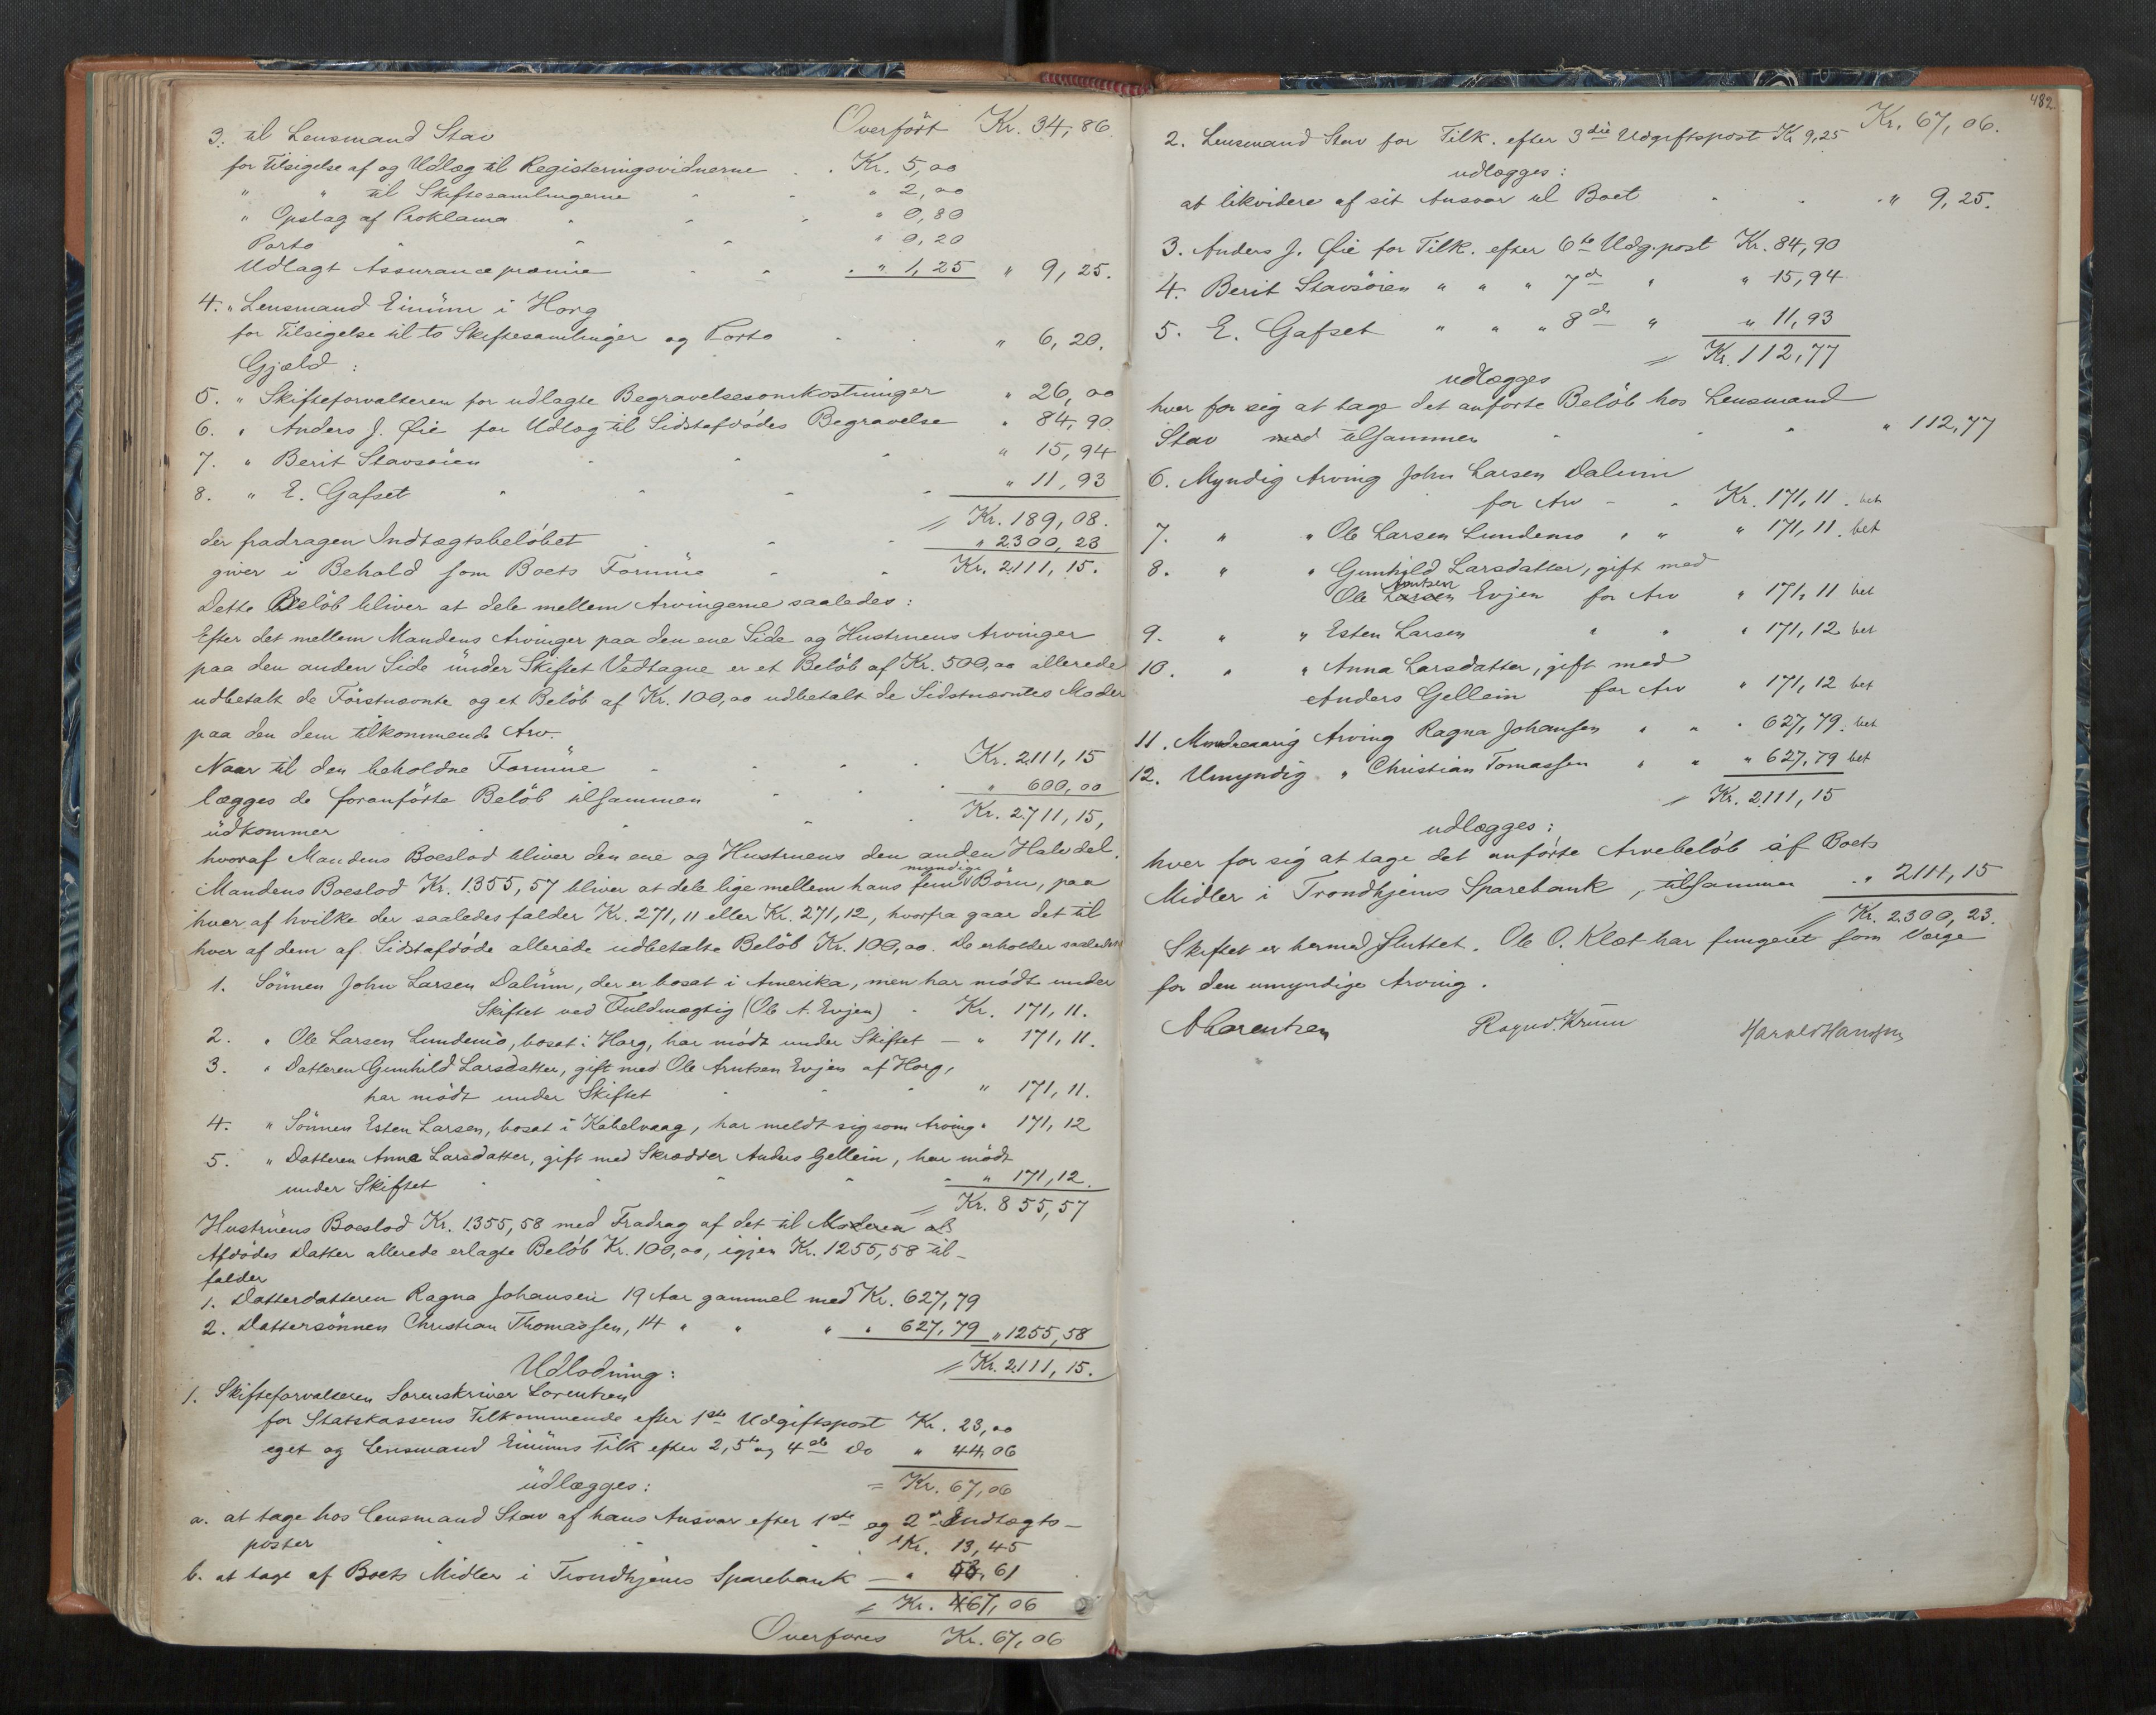 Overført Kr. 34,86.
3. til Lensmand Stav
for Tilsigelse af og Udlæg til Registeringsvidnerne . . Kr. 5,00
" " til Skiftesamlingerne " 2,00
" Opslag af Proklama " 0,80
Porto " 0,20
Udlagt Assurancepræmie " 1,25 " 9,25.
4. " Lensmand Einum i Horg
for Tilsigelse til to Skiftesamlinger og Porto " 6,20.
Gjæld :
5. " Skifteforvalteren for udlagte Begravelsesomkostninger " 26,00
6. " Anders J. Øie for Udlæg til Sidstafdødes Begravelse " 84,90
7. " Berit Stavsøien " 15,94
8. " E. Gafset " 11,93
= Kr. 189,08.
der fradragen Indtægtsbeløbet " 2300,23
giver i Behold som Boets Formue Kr. 2111,15.
Dette Beløb bliver at dele mellem Arvingerne saaledes :
Efter det mellem Mandens Arvinger paa den ene Side og Hustruens Arvinger
paa den anden Side under Skiftet Vedtagne er et Beløb af Kr. 500,00 allerede
udbetalt de Førstnævnte og et Beløb af Kr. 100,00 udbetalt de Sidstnævntes Moder
paa den dem tilkommende Arv.
Naar til den beholdne Formue Kr. 2111,15
lægges de foranførte Beløb tilsammen " 600,00
udkommer Kr. 2711,15,
hvoraf Mandens Boeslod bliver den ene og Hustruens den anden Halvdel.
Mandens Boeslod Kr. 1355,57 bliver at dele lige mellem hans fem myndige Børn, paa
hver af hvilke der saaledes falder Kr. 271,11 eller Kr. 271,12, hvorfra gaar det til
hver af dem af Sidstafdøde allerede udbetalte Beløb Kr. 100,00. De erholder saaledes
1. Sønnen John Larsen Dalum, der er bosat i Amerika, men har mødt under
Skiftet ved Fuldmægtig (Ole A. Evjen) Kr. 171,11.
2. " Ole Larsen Lundemo, bosat i Horg, har mødt under Skiftet — " 171,11.
3. " Datteren Gunhild Larsdatter, gift med Ole Arntsen Evjen af Horg,
har mødt under Skiftet " 171,11.
4. " Sønnen Esten Larsen, bosat i Kabelvaag, har meldt sig som Arving " 171,12
5. " Datteren Anna Larsdatter, gift med Skrædder Anders Gellein, har mødt
under Skiftet " 171,12.
= Kr. 855,57
Hustruens Boeslod Kr. 1355,58 med Fradrag af det til Moderen als
Afdødes Datter allerede erlagte Beløb Kr. 100,00, igjen Kr. 1255,58 til-
falder
1. Datterdatteren Ragna Johansen 19 Aar gammel med Kr. 627,79
2. Dattersønnen Christian Thomassen, 14 " " " " 627,79 " 1255,58
= Kr. 2111,15.
Udlodning :
1. Skifteforvalteren Sorenskriver Lorentzen
for Statskassens Tilkommende efter 1ste Udgiftspost Kr. 23,00
eget og Lensmand Einums Tilk efter 2, 5te og 4de Do " 44,06
udlægges : = Kr. 67,06
a. at tage hos Lensmand Stav af hans Ansvar efter 1ste og 2den Indtægts-
poster Kr. 13,45
b. at tage af Boets Midler i Trondhjems Sparebank — " 53,61
= Kr. 67,06
Overføres Kr. 67,06
482
Kr. 67,06.
2. Lensmand Stav for Tilk. efter 3die Udgiftspost Kr 9,25
udlægges :
at likvidere af sit Ansvar til Boet " 9,25.
3. Anders J. Øie for Tilk. efter 6te Udg.post Kr. 84,90
4. Berit Stavsøien " " " 7de " " 15,94
5. E. Gafset " " " 8de " " 11,93
= Kr. 112,77
udlægges
hver for sig at tage det anførte Beløb hos Lensmand
Stav med tilsammen " 112,77
6. Myndig Arving John Larsen Dalum
for Arv - - Kr. 171,11. bet
7. " " Ole Larsen Lundemo " " " 171,11. bet
8. " " Gunhild Larsdatter, gift med
Ole Larsen Arntsen Evjen for Arv " 171,11 bet
9. " " Esten Larsen " " " 171,12 bet
10. " " Anna Larsdatter, gift med
Anders Gellein for Arv " 171,12 bet
11. Mindreaarig Arving Ragna Johansen " " " 627,79. bet
12. Umyndig " Christian Tomassen " " " 627,79 bet
= Kr. 2111,15
udlægges :
hver for sig at tage det anførte Arvebeløb af Boets
Midler i Trondhjems Sparebank, tilsammen . " 2111,15
= Kr. 2300,23.
Skiftet er hermed sluttet. Ole O. Klæt har fungeret som Værge
for den umyndige Arving.
A Lorentzen Ragnv. Krum Harald Hansen